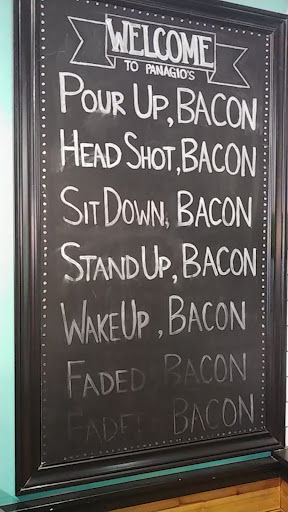 WELCOME
TO PANAGIO'S
POUR UP, BACON
HEAD SHOT, BACON
SIT DOWN, BACON
STAND UP, BACON
WAKE UP, BACON
FADED BACON
FADED BACON